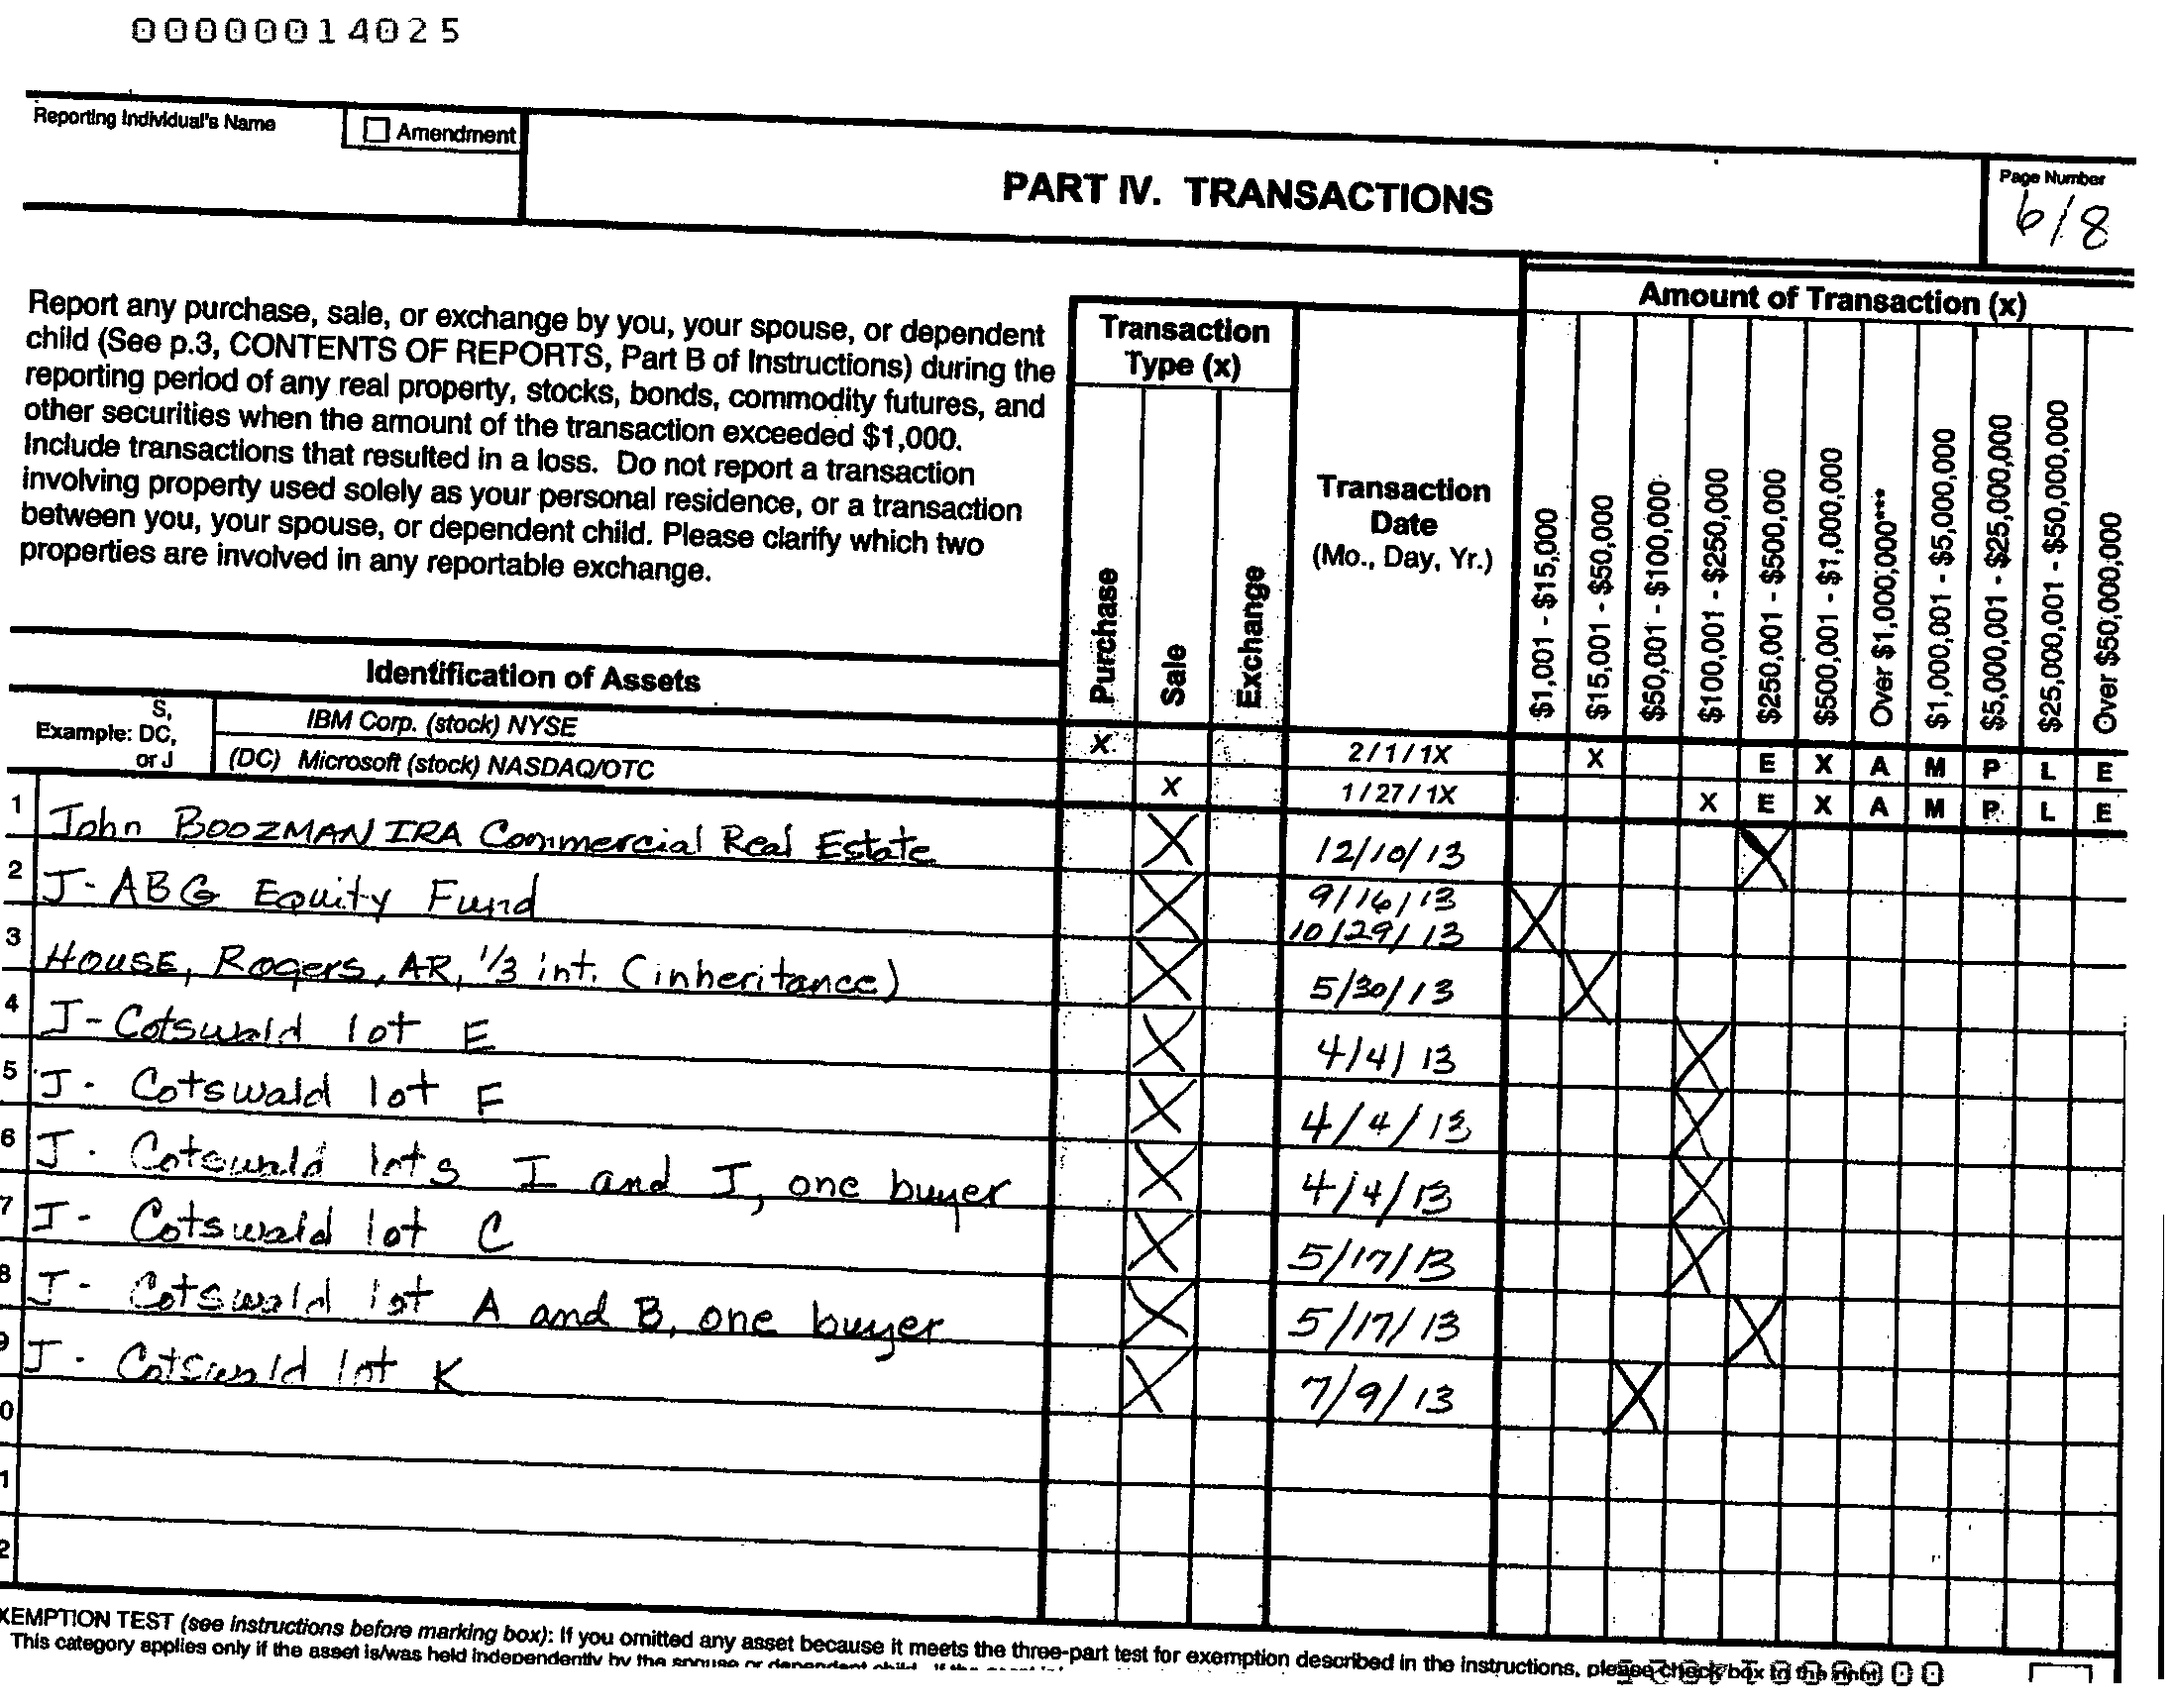 00000014025
Reporting Individual's Name
Amendment
PART IV. TRANSACTIONS
Page Number
6/8
Report any purchase, sale, or exchange by you, your spouse, or dependent
child (See p.3, CONTENTS OF REPORTS, Part B of Instructions) during the
reporting period of any real property, stocks, bonds, commodity futures, and
other securities when the amount of the transaction exceeded $1,000.
Include transactions that resulted in a loss. Do not report a transaction
involving property used solely as your personal residence, or a transaction
between you, your spouse, or dependent child. Please clarify which two
properties are involved in any reportable exchange.
Transaction
Type (x)
Purchase
Sale
Exchange
Transaction
Date
(Mo., Day, Yr.)
Amount of Transaction (x)
$1,001 - $15,000
$15,001 - $50,000
$50,001 - $100,000
$100,001 - $250,000
$250,001 - $500,000
$500,001 - $1,000,000
Over $1,000,000***
$1,000,001 - $5,000,000
$5,000,001 - $25,000,000
$25,000,001 - $50,000,000
Over $50,000,000
Identification of Assets
Example:
S,
DC,
or J
IBM Corp. (stock) NYSE X 2/1/1X X E X A M P L E
(DC) Microsoft (stock) NASDAQ/OTC X 1/27/1X X E X A M P L E
1 John BOOZMAN IRA Commercial Real Estate X 12/10/13 X
2 J- ABG Equity Fund X 9/16/13 X
10/29/13
3 HOUSE, Rogers, AR, 1/3 int. (inheritance) X 5/30/13 X
4 J- Cotswald lot E X 4/4/13 X
5 J- Cotswald lot F X 4/4/13 X
6 J- Cotswald lots I and J, one buyer X 4/4/13 X
7 J- Cotswald lot C X 5/17/13 X
8 J- Cotswald lot A and B, one buyer X 5/17/13 X
9 J- Cotswald lot K X 7/9/13 X
0
1
2
XEMPTION TEST (see instructions before marking box): If you omitted any asset because it meets the three-part test for exemption described in the instructions, please check box to the right
This category applies only if the asset is/was held independently by the spouse or dependent child.